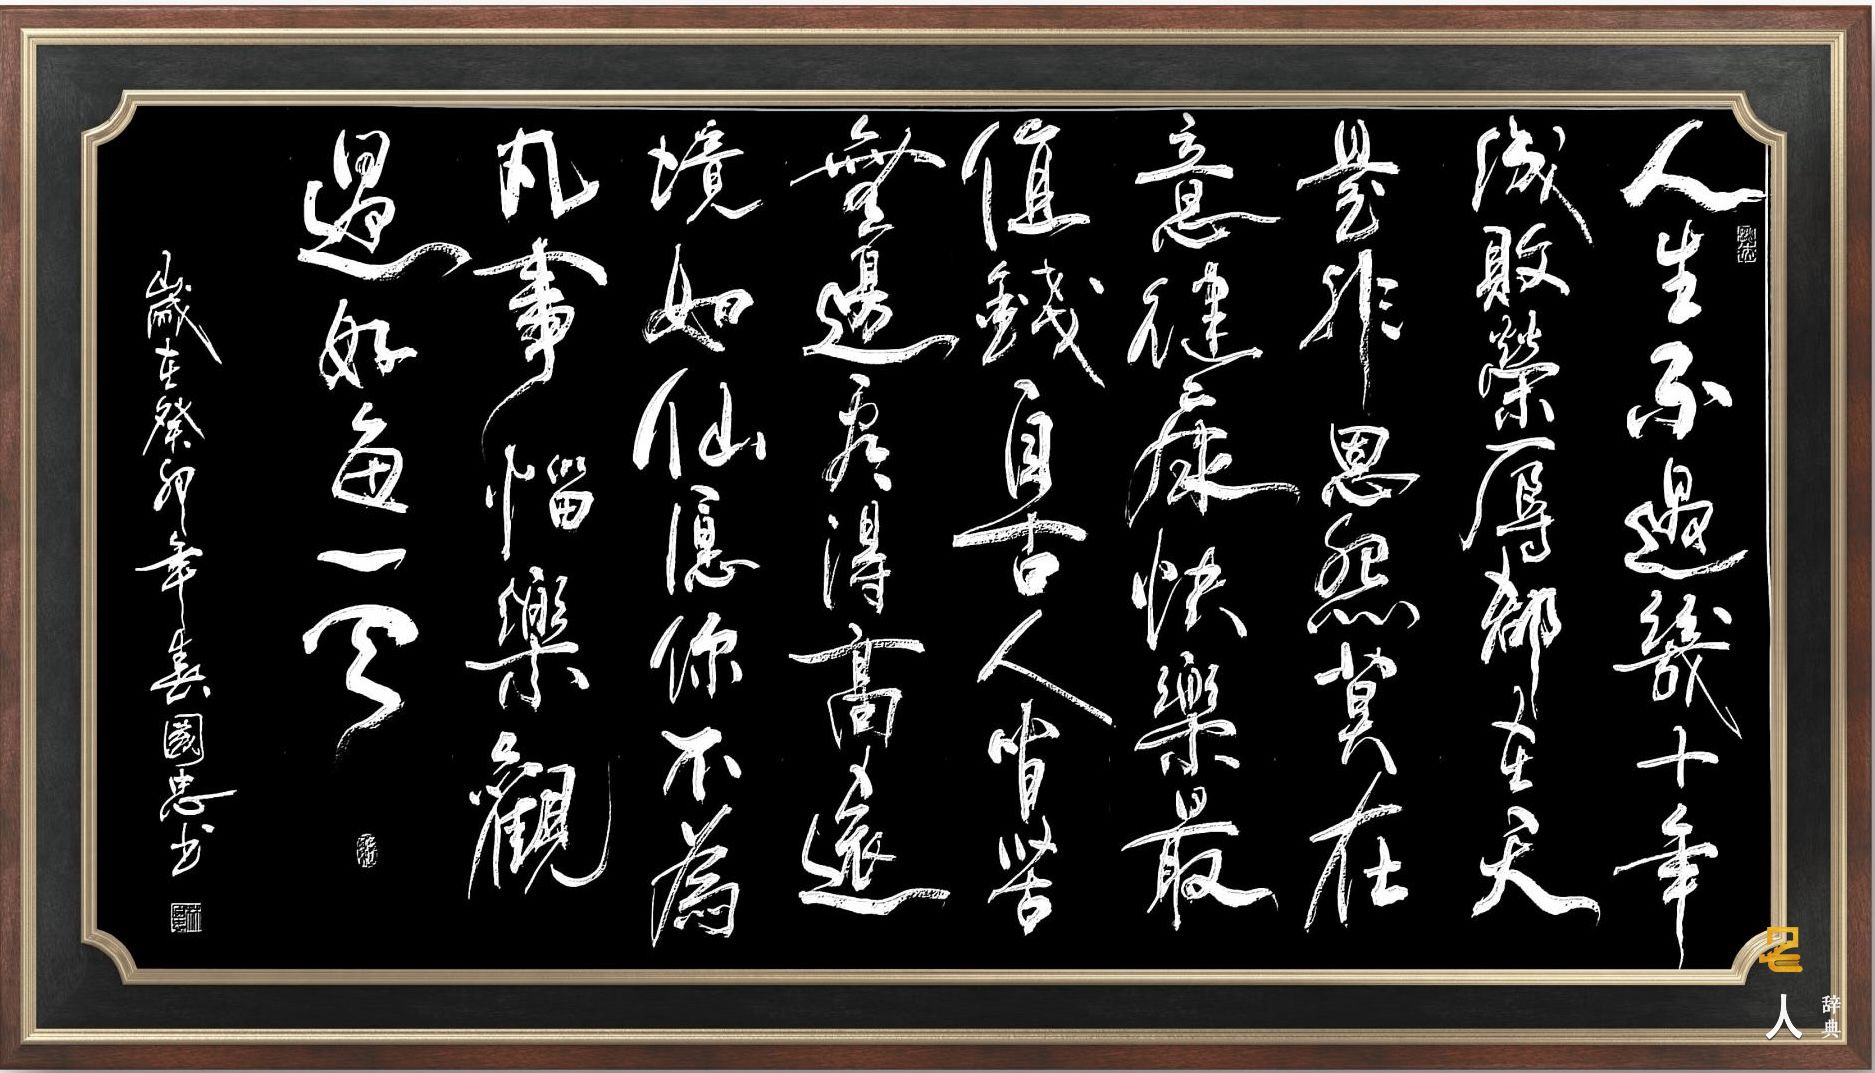 人生不過幾十年
成敗榮辱都在天
是非恩怨莫在
意健康快樂最
值錢自古人皆苦
無邊看得高遠
境如仙愿你不為
凡事惱樂觀
過好每一天
歲在癸卯年春國忠书
名人
辞典